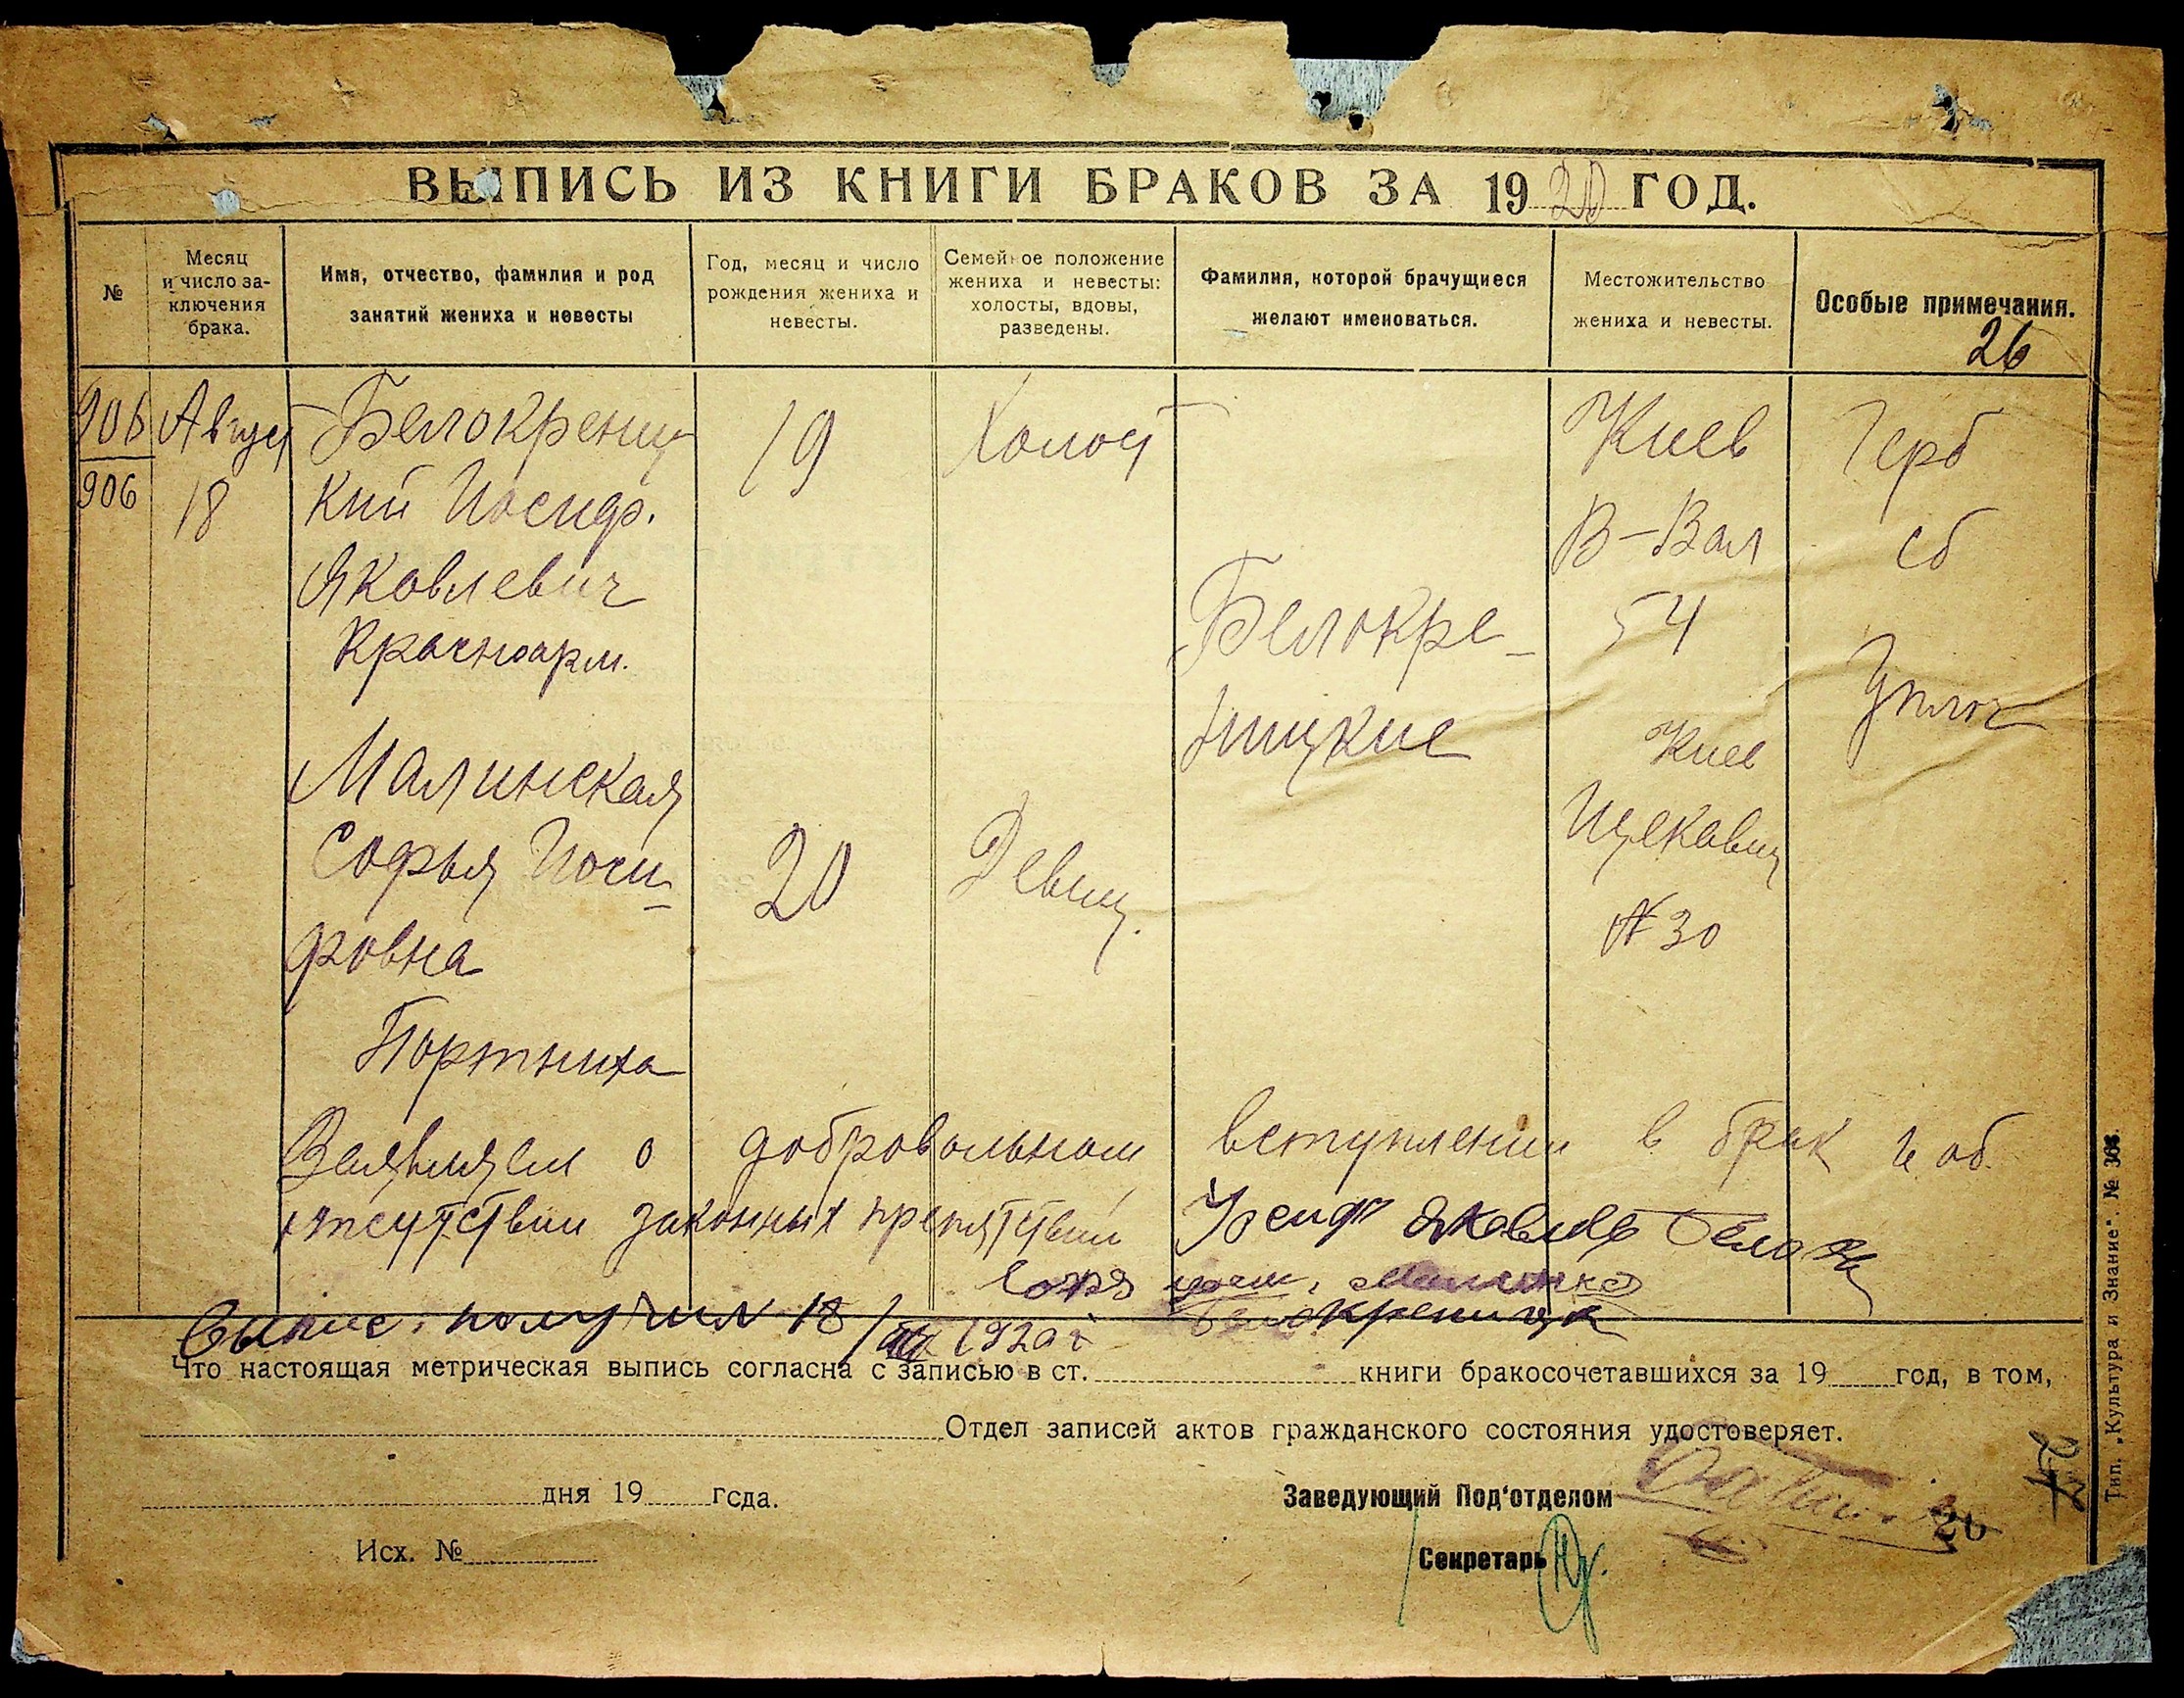 ВЫПИСЬ ИЗ КНИГИ БРАКОВ ЗА 1920 ГОД.
№
Месяц
и число за-
ключения
брака.
Имя, отчество, фамилия и род
занятий жениха и невесты
Год, месяц и число
рождения жениха и
невесты.
Семейное положение
жениха и невесты:
холосты, вдовы,
разведены.
Фамилия, которой брачущиеся
желают именоваться.
Местожительство
жениха и невесты.
Особые примечания.
26
906
906
Август
18
Белокрениц
кий Иосиф.
Яковлевич
Красноарм.
19
Холост
Киев
В-Вал
54
Герб
сб
Уплоч
Белокре-
ницкие
Малинская
Софья Иоси-
фовна
Портниха
20
Девиц.
Киев
Щекавиц
№ 30
Заявляем о добровольном вступлении в брак и об
отсутствии законных препятствий Иосиф Яковлев
Выпис. получил 18/ 1920 г
Что настоящая метрическая выпись согласна с записью в ст. книги бракосочетавшихся за 19 год, в том,
Отдел записей актов гражданского состояния удостоверяет.
дня 19 года.
Заведующий Под'отделом
26
Исх. №
Секретарь
Тип. „Культура и Знание". №